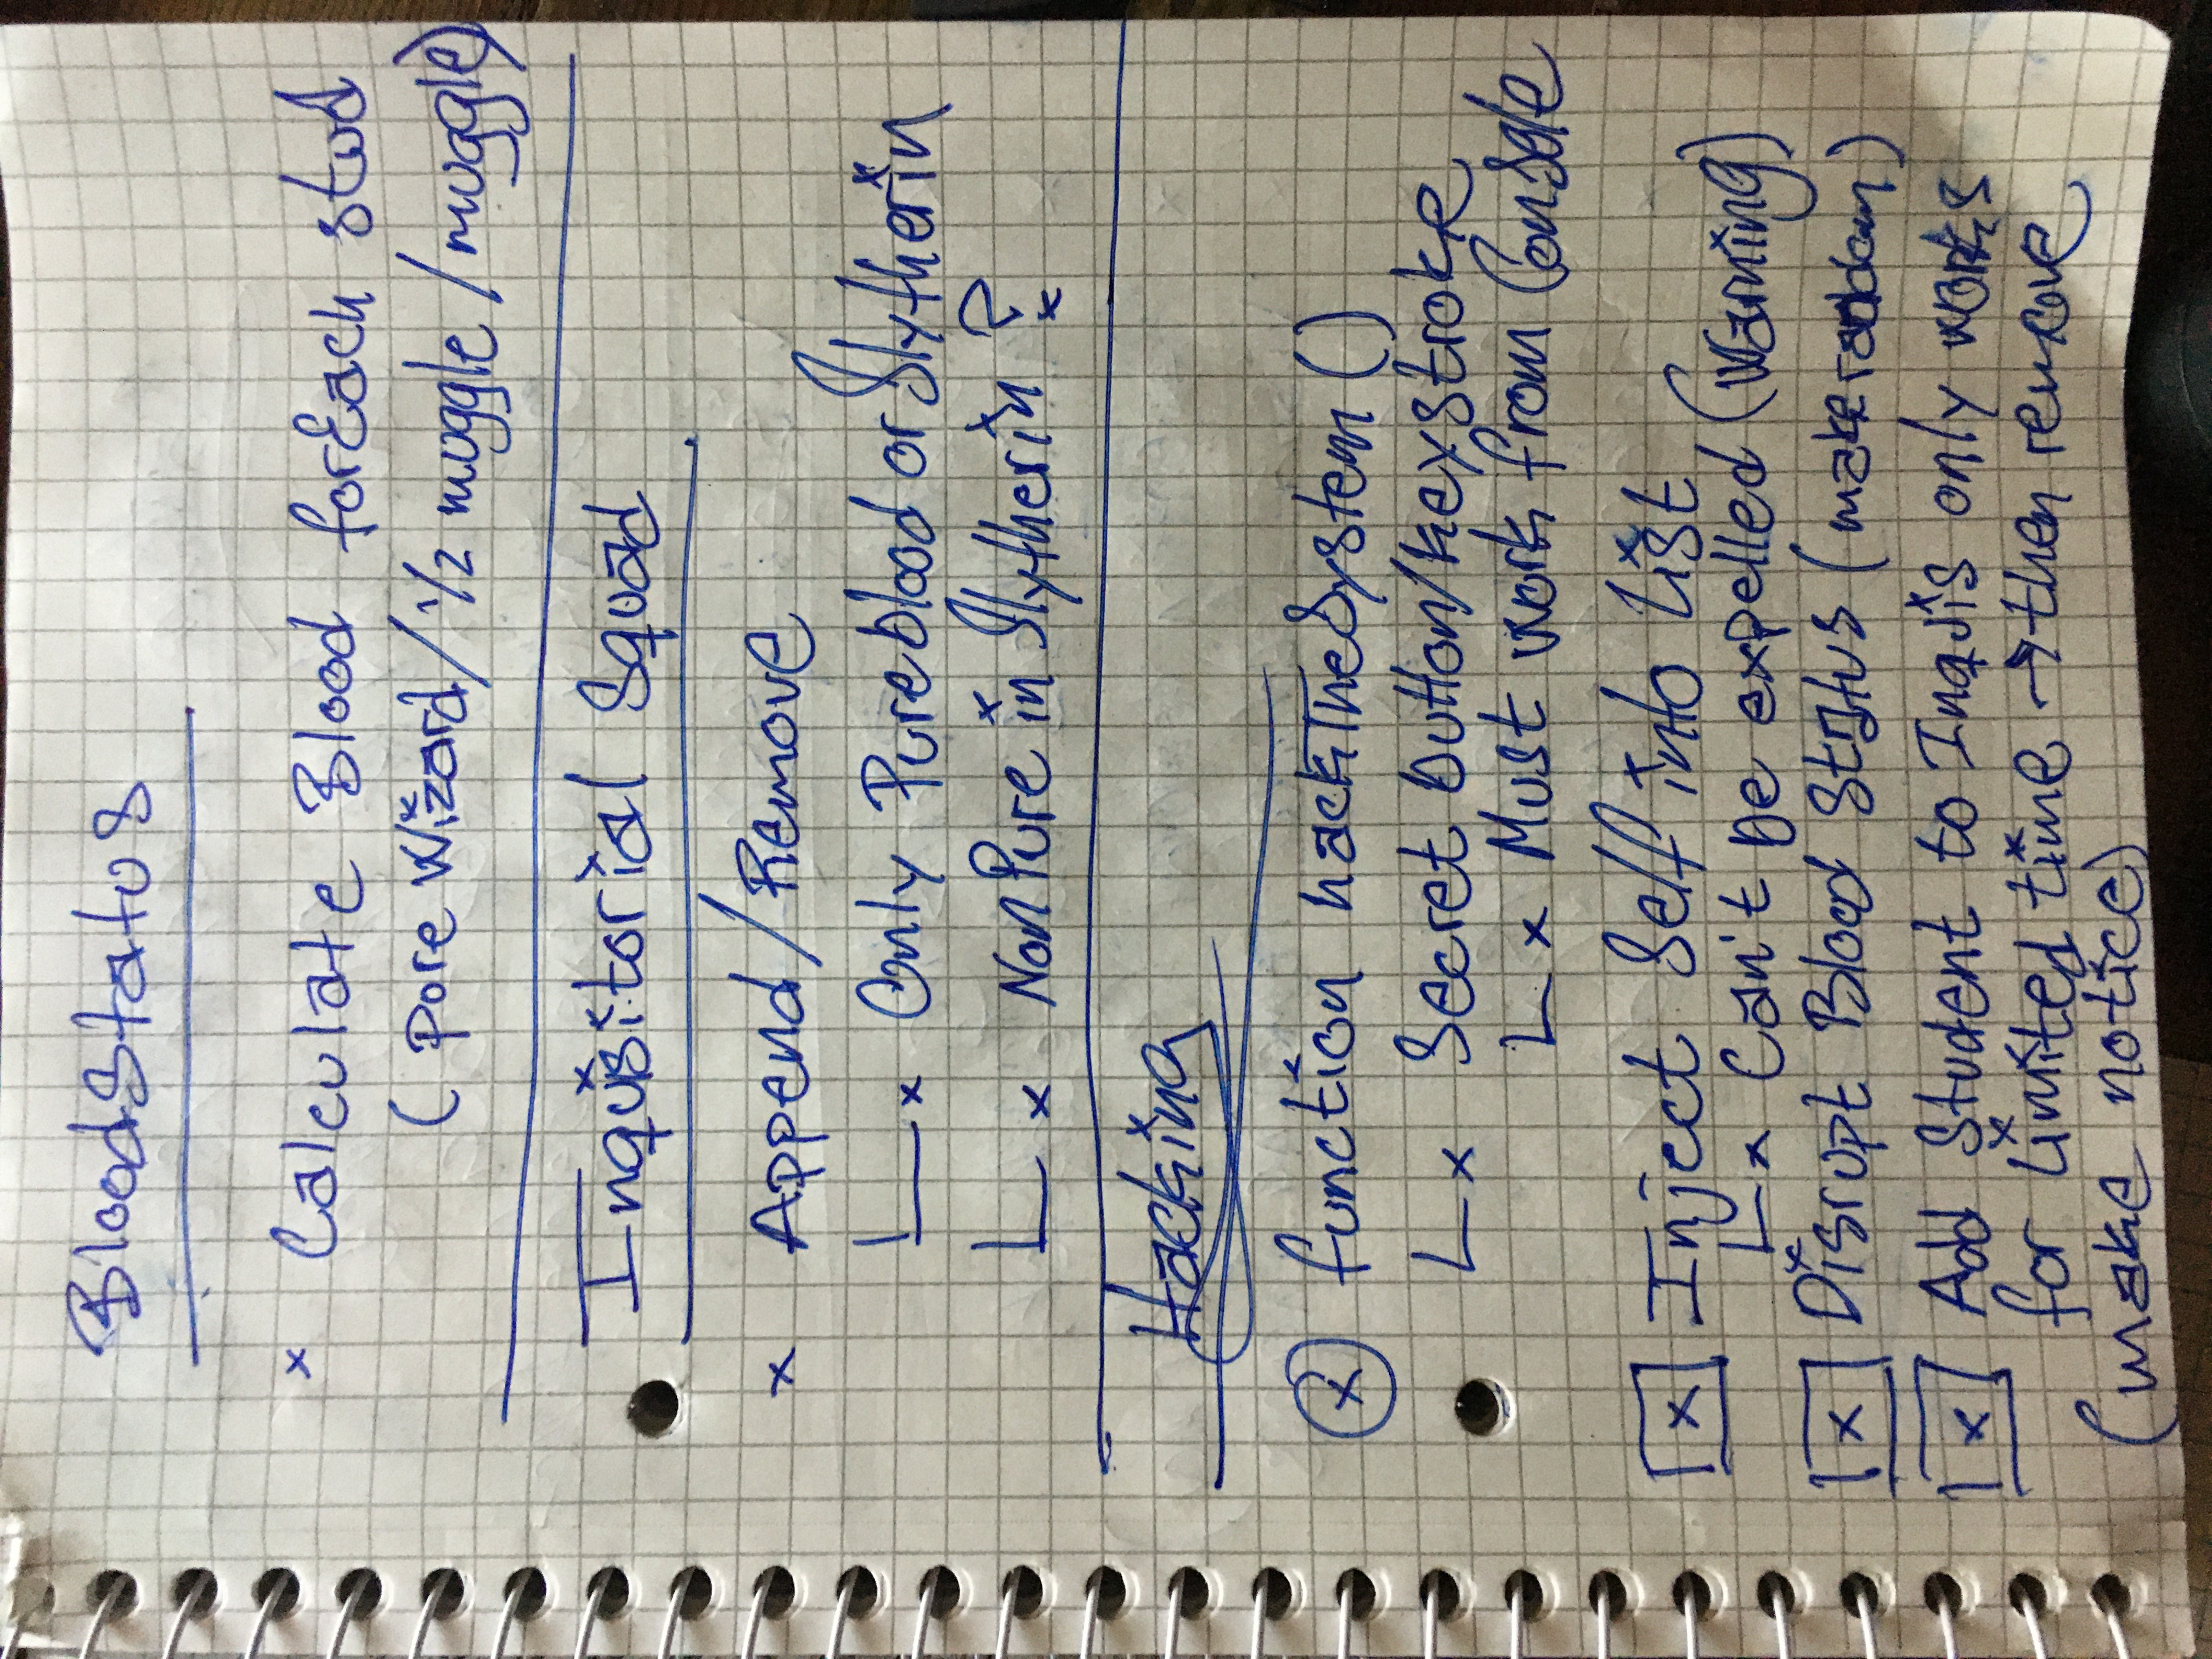 BloodStatus
x Calculate Blood forEach stud
(pure Wizard/½ muggle/muggle)
Inquisitorial Squad
x Append/Remove
L x Only Pureblood or Slytherin
L x NonPure in Slytherin ?
Hacking
x function hackTheSystem ()
L x Secret button/keystroke
L x Must work from Console
x Inject Self into List
L x Can't be expelled (Warning)
x Disrupt Blood Status (make random)
x Add Student to Inquis only works
for limited time → then remove
(make notice)